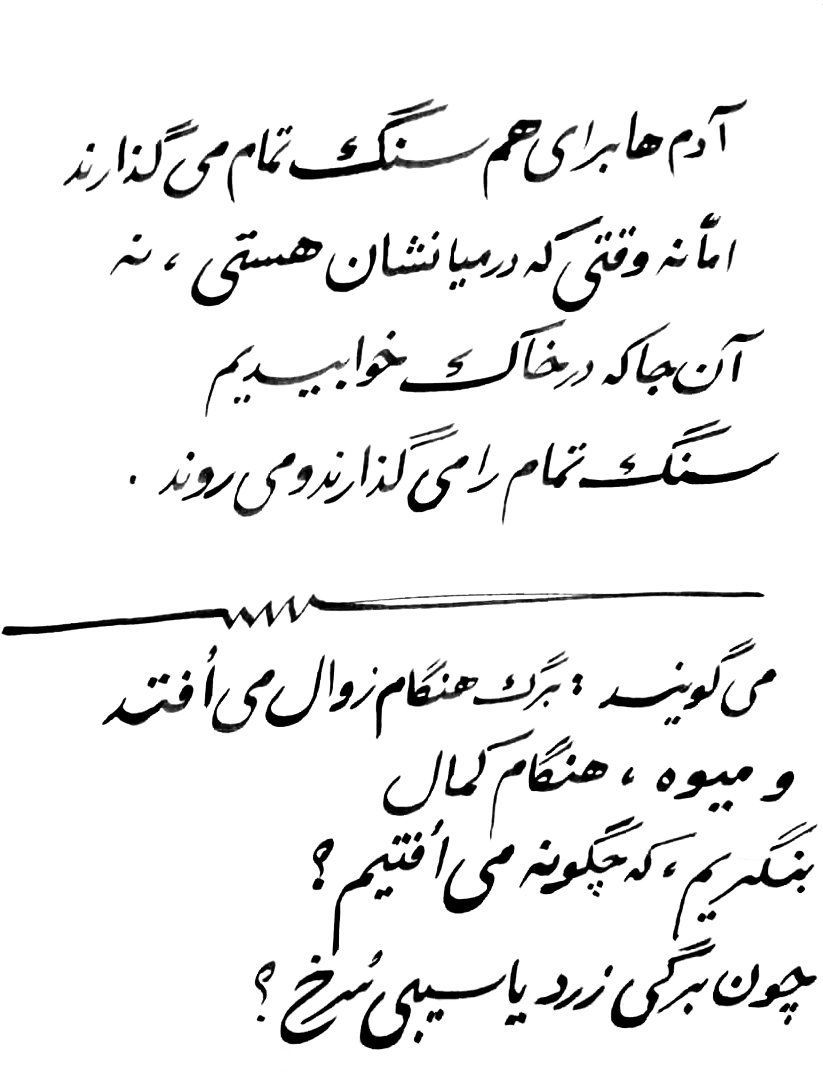 آدم ها برای هم سنگ تمام می گذارند
امّا نه وقتی که در میانشان هستی ، نه
آن جا که در خاک خوابیدیم
سنگ تمام را می گذارند و می روند .
می گویند : برگ هنگام زوال می اُفتد
و میوه ، هنگام کمال
بنگریم ، که چگونه می اُفتیم ؟
چون برگی زرد یا سیبی سُرخ ؟